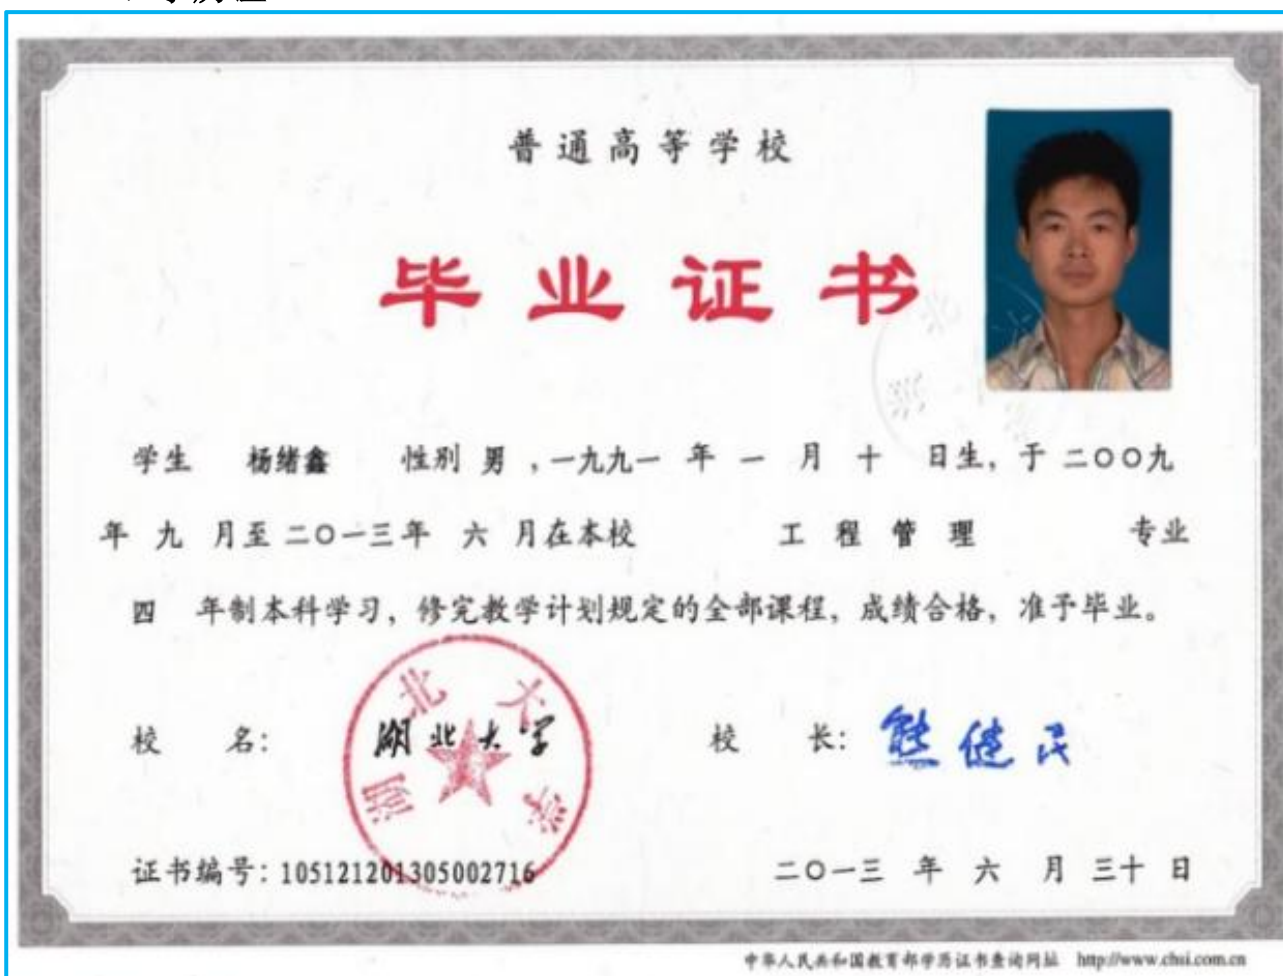 普通高等学校
毕业证书
学生 杨绪鑫 性别 男 ,一九九一 年 一 月 十 日生, 于 二〇〇九
年 九 月至 二〇一三年 六 月在本校 工程管理 专业
四 年制本科学习, 修完教学计划规定的全部课程, 成绩合格, 准予毕业。
湖北大学
校 名: 湖北大学 校 长: 熊健民
证书编号: 105121201305002716 二〇一三 年 六 月 三十 日
中华人民共和国教育部学历证书查询网址 http://www.chsi.com.cn